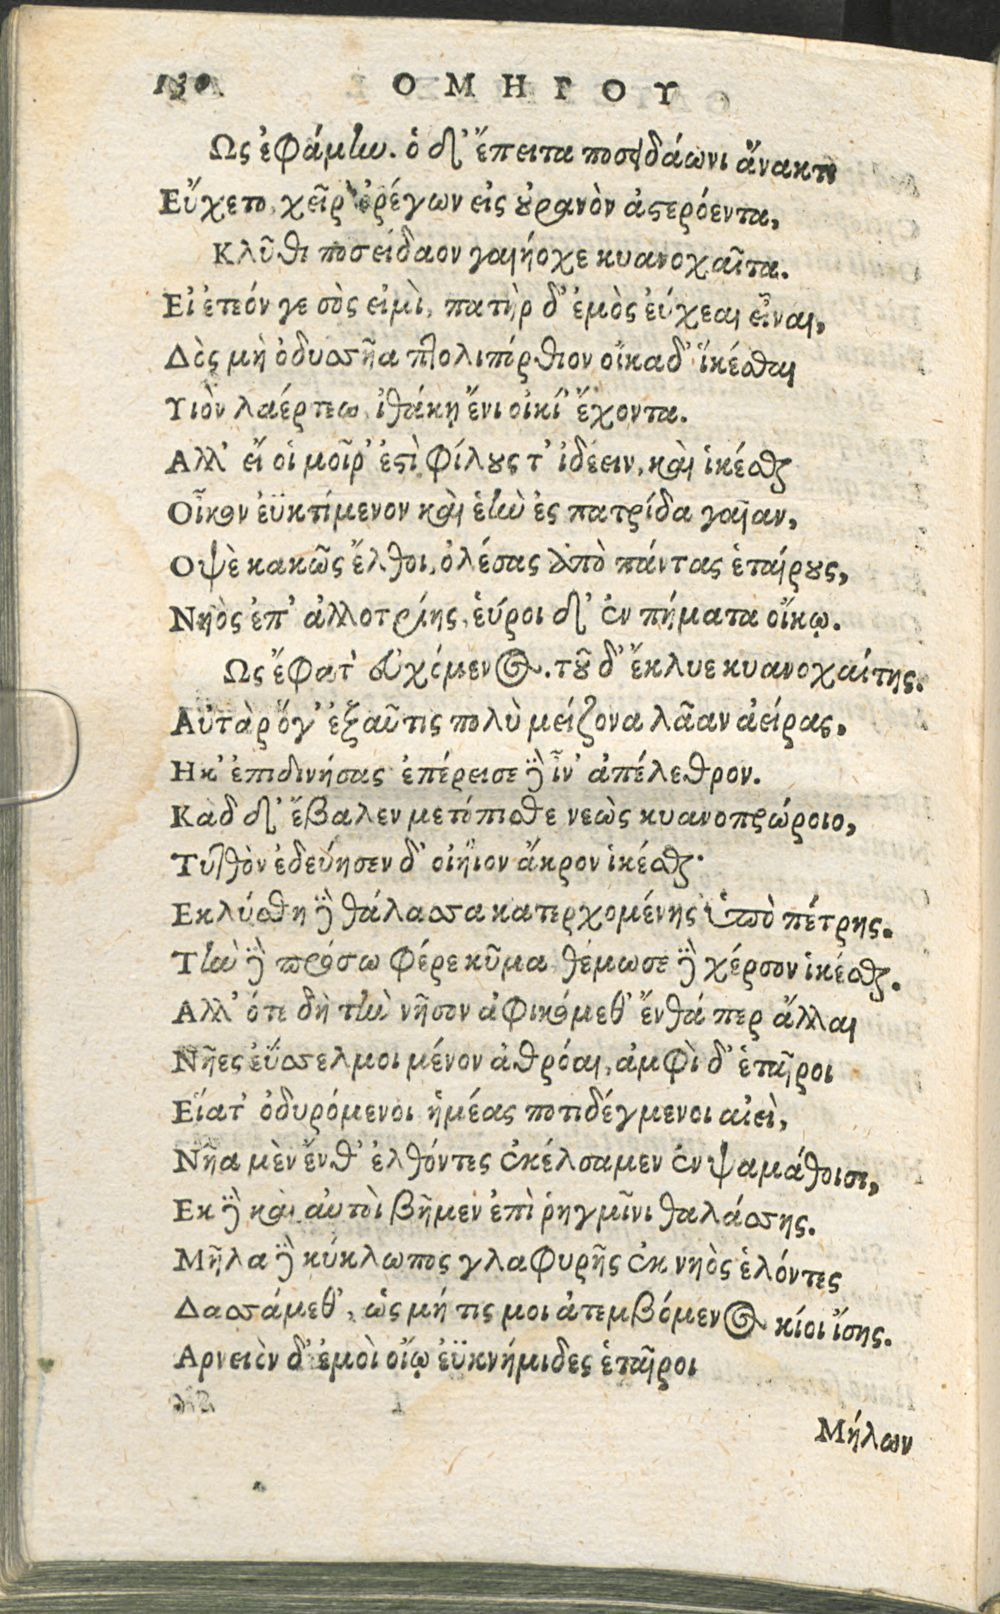 130 ΟΜΗΡΟΥ
Ως ἐφάμlω. ὁ δ' ἔπειτα ποσειδάωνι ἄνακτι
Εὔχετο, χεῖρ' ὀρέγων εἰς ȣ̓ρανὸν ἀϛερόεντα,
Κλῦθι ποσείδαον γαιήοχε κυανοχαῖτα.
Εἰ ἐτεόν γε σὸς εἰμὶ, πατὴρ δ' ἐμὸς ἐύχεαι εἶναι,
Δὸς μὴ ὀδυσσῆα πτολιπόρθιον οἴκαδ' ἵκέσθαι
Υιὸν λαέρτεω, ἰθάκῃ ἔνι οἰκί' ἔχοντα.
Αλλ' εἴ οἱ μοῖρ' ἐϛὶ φίλȣς τ' ἰδέειν, καὶ ἱκέσθαι
Οἶκον ἐϋκτίμενον καὶ ἑlὼ ἐς πατρίδα γαῖαν,
Οψὲ κακῶς ἔλθοι, ὀλέσας ἀπὸ πάντας ἑταίρȣς,
Νηὸς ἐπ' ἀλλοτρίης, ἑύροι δ' ἐν πήματα οἴκῳ.
Ως ἔφατ' εὐχόμενος. τοῦ δ' ἔκλυε κυανοχαίτης.
Αὐτὰρ ὅγ' ἐξαῦτις πολὺ μείζονα λᾶαν ἀείρας,
Ηκ' ἐπιδινήσας ἐπέρεισε δὲ ἶν' ἀπέλεθρον.
Καδ δ' ἔβαλεν μετόπισθε νεὼς κυανοπρώροιο,
Τυτθὸν ἐδεύησεν δ' οἰήϊον ἄκρον ἱκέσθαι·
Εκλύσθη δὲ θάλασσα κατερχομένης ὑπὸ πέτρης.
Τlὼ δὲ πρόσω φέρε κῦμα, θέμωσε δὲ χέρσον ἱκέσθαι.
Αλλ' ότε δὴ τlὼ νῆσον ἀφικόμεθ' ἔνθά περ ἄλλαι
Νῆες ἐύσσελμοι μένον ἀθρόαι, ἀμφὶ δ' ἑταῖροι
Είατ' ὀδυρόμενοι ἡμέας ποτιδέγμενοι αἰεὶ,
Νῆα μὲν ἔνθ' ἐλθόντες ἐκέλσαμεν ἐν ψαμάθοισι,
Εκ δὲ καὶ αὐτοὶ βῆμεν ἐπὶ ῥηγμῖνι θαλάσσης.
Μῆλα δὲ κύκλωπος γλαφυρῆς ἐκ νηὸς ἑλόντες
Δασσάμεθ', ὡς μή τις μοι ἀτεμβόμενος κίοι ἴσης.
Αρνειὸν δ' ἐμοὶ οἴῳ ἐϋκνήμιδες ἑταῖροι
Μήλων